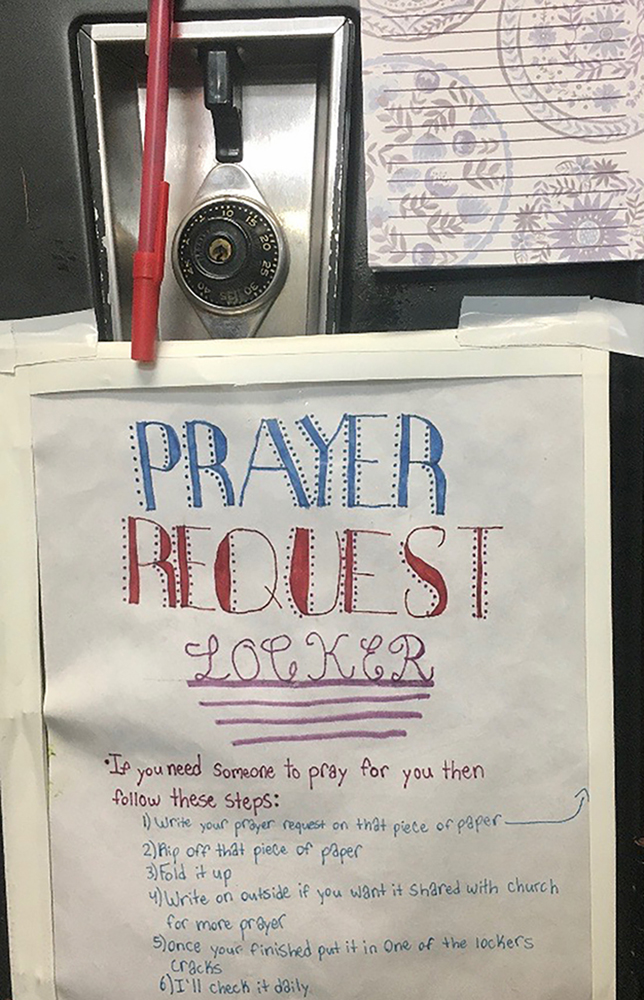 10 15 20 25 30 35 40
PRAYER
REQUEST
LOCKER
•If you need someone to pray for you then
follow these steps:
1) Write your prayer request on that piece of paper
2) Rip off that piece of paper
3) Fold it up
4) Write on outside if you want it shared with church
for more prayer
5) once your finished put it in one of the lockers
cracks
6) I'll check it daily